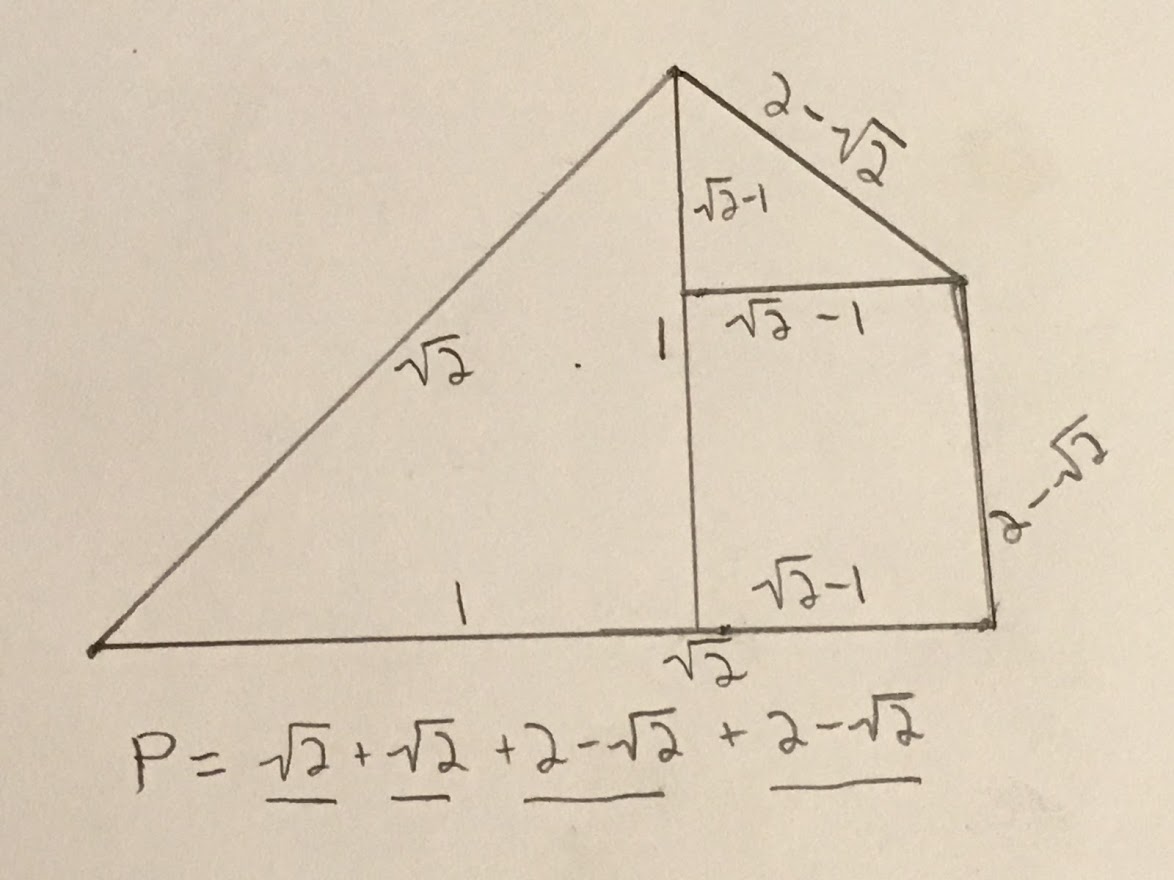 2-√2
√2-1
√2-1
1
√2
2-√2
1
√2-1
√2
P= √2 + √2 + 2-√2 + 2-√2